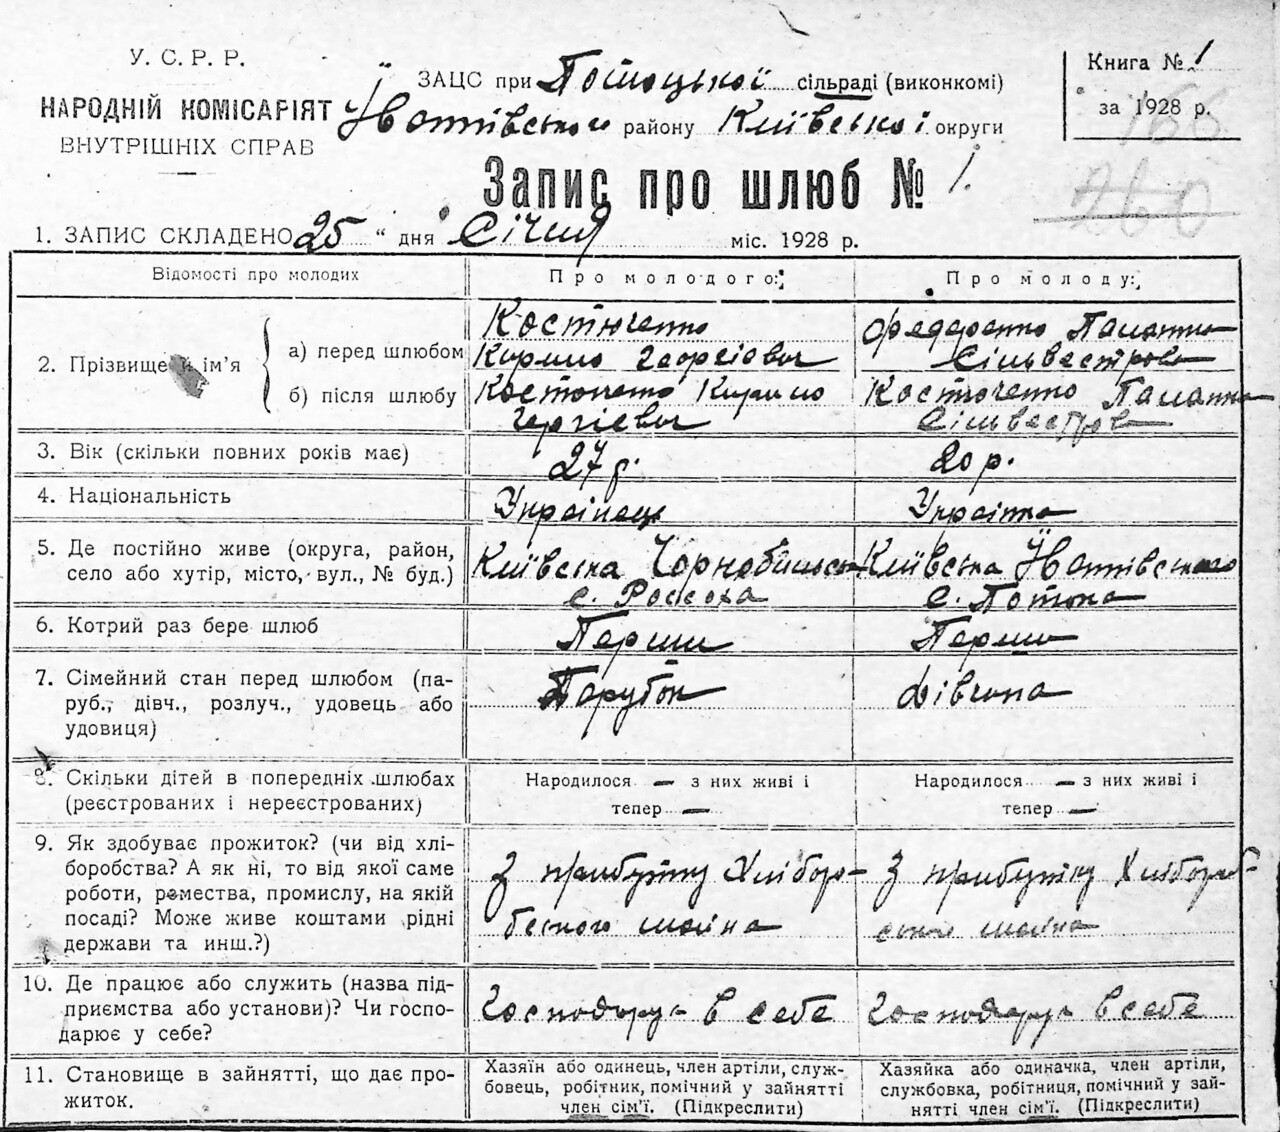 У. С. Р. Р.
НАРОДНІЙ КОМІСАРІЯТ
ВНУТРІШНІХ СПРАВ
ЗАЦС при Потоцької сільраді (виконкомі)
району Київської округи
Книга № 1
за 1928 р.
166
260
Запис про шлюб № 1.
1. ЗАПИС СКЛАДЕНО 25 " дня Січня міс. 1928 р.
Відомості про молодих
Про молодого:
Про молоду:
2. Прізвище й ім'я
а) перед шлюбом
Костюченко
Кирило Георгієвич
Федоренко
Сільвестров
б) після шлюбу
Костюченко Кирило
Георгієвич
Костюченко
Сільвестров
3. Вік (скільки повних років має)
27 р.
20 р.
4. Національність
Українець
Українка
5. Де постійно живе (округа, район,
село або хутір, місто, вул., № буд.)
Київська Чорнобильськ
с. Россоха
Київська
с. Потока
6. Котрий раз бере шлюб
Перши
Перши
7. Сімейний стан перед шлюбом (па-
руб., дівч., розлуч., удовець або
удовиця)
Парубок
Дівчина
8. Скільки дітей в попередніх шлюбах
(реєстрованих і нереєстрованих)
Народилося — з них живі і
тепер —
Народилося — з них живі і
тепер —
9. Як здобуває прожиток? (чи від хлі-
боробства? А як ні, то від якої саме
роботи, ремества, промислу, на якій
посаді? Може живе коштами рідні
держави та инш.?)
З прибутку Хлібороб-
ского маіна
З прибутку Хлібороб-
ског маіна
10. Де працює або служить (назва під-
приємства або установи)? Чи госпо-
дарює у себе?
Господарує в себе
Господарує в себе
11. Становище в зайнятті, що дає про-
житок.
Хазяїн або одинець, член артіли, служ-
бовець, робітник, помічний у зайнятті
член сім'ї. (Підкреслити)
Хазяйка або одиначка, член артіли,
службовка, робітниця, помічний у зай-
нятті член сім'ї. (Підкреслити)